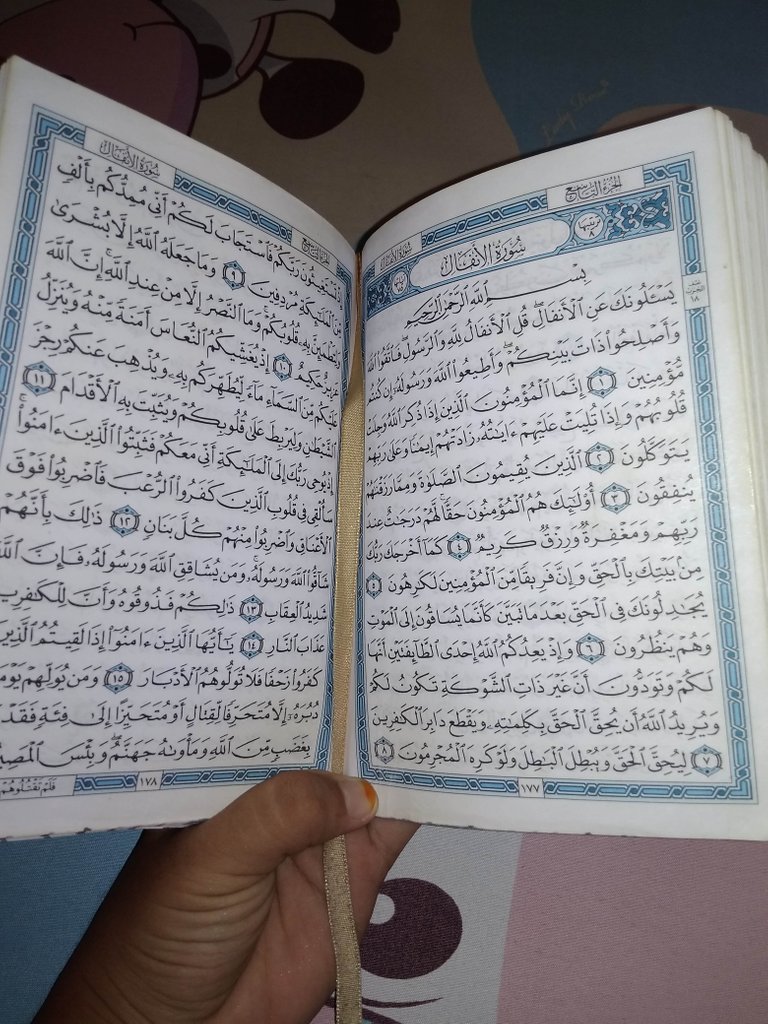 الجُزْءُ التَّاسِعُ
سُورَةُ الأَنفَالِ
سُورَةُ الأَنفَالِ
ترتيبها ٨
بِسْمِ ٱللَّهِ ٱلرَّحْمَٰنِ ٱلرَّحِيمِ
يَسْـَٔلُونَكَ عَنِ ٱلْأَنفَالِۖ قُلِ ٱلْأَنفَالُ لِلَّهِ وَٱلرَّسُولِۖ فَٱتَّقُوا۟ ٱللَّهَ
وَأَصْلِحُوا۟ ذَاتَ بَيْنِكُمْۖ وَأَطِيعُوا۟ ٱللَّهَ وَرَسُولَهُۥٓ إِن كُنتُم
مُّؤْمِنِينَ ١ إِنَّمَا ٱلْمُؤْمِنُونَ ٱلَّذِينَ إِذَا ذُكِرَ ٱللَّهُ وَجِلَتْ
قُلُوبُهُمْ وَإِذَا تُلِيَتْ عَلَيْهِمْ ءَايَٰتُهُۥ زَادَتْهُمْ إِيمَٰنًا وَعَلَىٰ رَبِّهِمْ
يَتَوَكَّلُونَ ٢ ٱلَّذِينَ يُقِيمُونَ ٱلصَّلَوٰةَ وَمِمَّا رَزَقْنَٰهُمْ
يُنفِقُونَ ٣ أُو۟لَٰٓئِكَ هُمُ ٱلْمُؤْمِنُونَ حَقًّاۚ لَّهُمْ دَرَجَٰتٌ عِندَ
رَبِّهِمْ وَمَغْفِرَةٌ وَرِزْقٌ كَرِيمٌ ٤ كَمَآ أَخْرَجَكَ رَبُّكَ
مِنۢ بَيْتِكَ بِٱلْحَقِّ وَإِنَّ فَرِيقًا مِّنَ ٱلْمُؤْمِنِينَ لَكَٰرِهُونَ ٥
يُجَٰدِلُونَكَ فِى ٱلْحَقِّ بَعْدَ مَا تَبَيَّنَ كَأَنَّمَا يُسَاقُونَ إِلَى ٱلْمَوْتِ
وَهُمْ يَنظُرُونَ ٦ وَإِذْ يَعِدُكُمُ ٱللَّهُ إِحْدَى ٱلطَّآئِفَتَيْنِ أَنَّهَا
لَكُمْ وَتَوَدُّونَ أَنَّ غَيْرَ ذَاتِ ٱلشَّوْكَةِ تَكُونُ لَكُمْ
وَيُرِيدُ ٱللَّهُ أَن يُحِقَّ ٱلْحَقَّ بِكَلِمَٰتِهِۦ وَيَقْطَعَ دَابِرَ ٱلْكَٰفِرِينَ
٧ لِيُحِقَّ ٱلْحَقَّ وَيُبْطِلَ ٱلْبَٰطِلَ وَلَوْ كَرِهَ ٱلْمُجْرِمُونَ ٨
١٧٧
الجُزْءُ التَّاسِعُ
سُورَةُ الأَنفَالِ
تَسْتَغِيثُونَ رَبَّكُمْ فَٱسْتَجَابَ لَكُمْ أَنِّى مُمِدُّكُم بِأَلْفٍ
مِّنَ ٱلْمَلَٰٓئِكَةِ مُرْدِفِينَ ٩ وَمَا جَعَلَهُ ٱللَّهُ إِلَّا بُشْرَىٰ
وَلِتَطْمَئِنَّ بِهِۦ قُلُوبُكُمْۚ وَمَا ٱلنَّصْرُ إِلَّا مِنْ عِندِ ٱللَّهِۚ إِنَّ ٱللَّهَ
عَزِيزٌ حَكِيمٌ ١٠ إِذْ يُغَشِّيكُمُ ٱلنُّعَاسَ أَمَنَةً مِّنْهُ وَيُنَزِّلُ
عَلَيْكُم مِّنَ ٱلسَّمَآءِ مَآءً لِّيُطَهِّرَكُم بِهِۦ وَيُذْهِبَ عَنكُمْ رِجْزَ
ٱلشَّيْطَٰنِ وَلِيَرْبِطَ عَلَىٰ قُلُوبِكُمْ وَيُثَبِّتَ بِهِ ٱلْأَقْدَامَ ١١
إِذْ يُوحِى رَبُّكَ إِلَى ٱلْمَلَٰٓئِكَةِ أَنِّى مَعَكُمْ فَثَبِّتُوا۟ ٱلَّذِينَ ءَامَنُوا۟ۚ
سَأُلْقِى فِى قُلُوبِ ٱلَّذِينَ كَفَرُوا۟ ٱلرُّعْبَ فَٱضْرِبُوا۟ فَوْقَ
ٱلْأَعْنَاقِ وَٱضْرِبُوا۟ مِنْهُمْ كُلَّ بَنَانٍ ١٢ ذَٰلِكَ بِأَنَّهُمْ
شَآقُّوا۟ ٱللَّهَ وَرَسُولَهُۥۚ وَمَن يُشَاقِقِ ٱللَّهَ وَرَسُولَهُۥ فَإِنَّ ٱللَّهَ
شَدِيدُ ٱلْعِقَابِ ١٣ ذَٰلِكُمْ فَذُوقُوهُ وَأَنَّ لِلْكَٰفِرِينَ
عَذَابَ ٱلنَّارِ ١٤ يَٰٓأَيُّهَا ٱلَّذِينَ ءَامَنُوٓا۟ إِذَا لَقِيتُمُ ٱلَّذِينَ
كَفَرُوا۟ زَحْفًا فَلَا تُوَلُّوهُمُ ٱلْأَدْبَارَ ١٥ وَمَن يُوَلِّهِمْ يَوْمَ
دُبُرَهُۥٓ إِلَّا مُتَحَرِّفًا لِّقِتَالٍ أَوْ مُتَحَيِّزًا إِلَىٰ فِئَةٍ فَقَدْ
بِغَضَبٍ مِّنَ ٱللَّهِ وَمَأْوَىٰهُ جَهَنَّمُۖ وَبِئْسَ ٱلْمَصِي
١٧٨
فَلَمْ تَقْتُلُوهُمْ